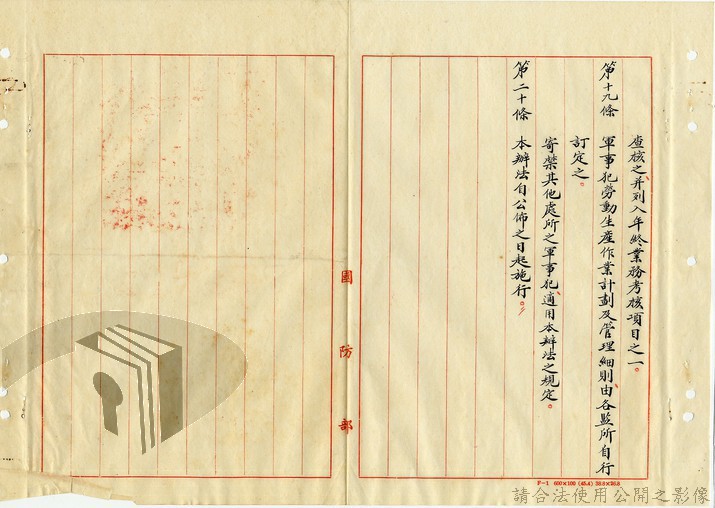 查核之、并列入年終業務考核項目之一。
第十九條　軍事犯勞動生產作業計劃及管理細則、由各監所自行
訂定之。
寄禁其他處所之軍事犯、適用本辦法之規定。
第二十條　本辦法自公佈之日起施行。
國防部
請合法使用公開之影像